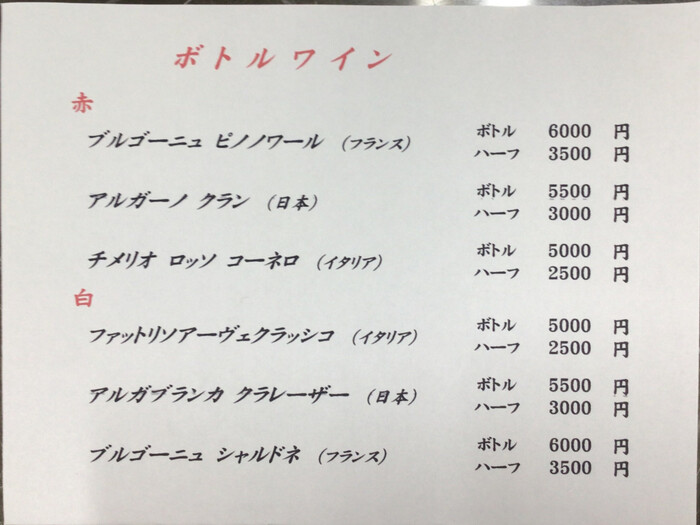 ボトルワイン
赤
ブルゴーニュ ピノノワール （フランス） ボトル 6000 円
ハーフ 3500 円
アルガーノ クラン （日本） ボトル 5500 円
ハーフ 3000 円
チメリオ ロッソ コーネロ （イタリア） ボトル 5000 円
ハーフ 2500 円
白
ファットリソアーヴェクラッシコ （イタリア） ボトル 5000 円
ハーフ 2500 円
アルガブランカ クラレーザー （日本） ボトル 5500 円
ハーフ 3000 円
ブルゴーニュ シャルドネ （フランス） ボトル 6000 円
ハーフ 3500 円